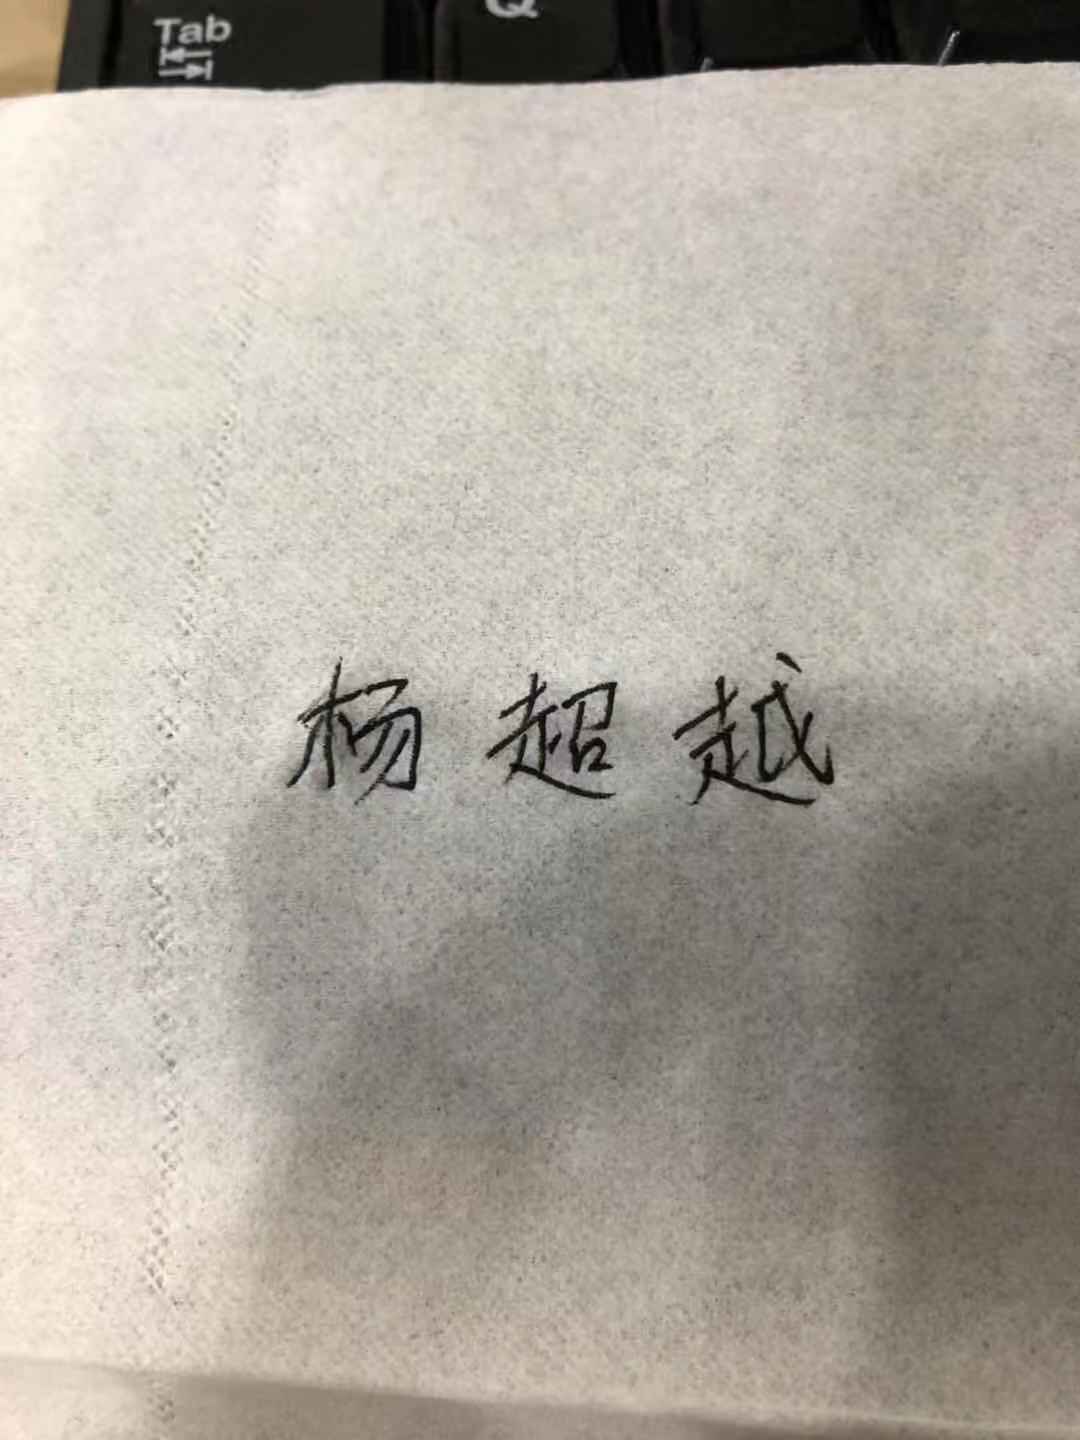 Tab Q
杨超越